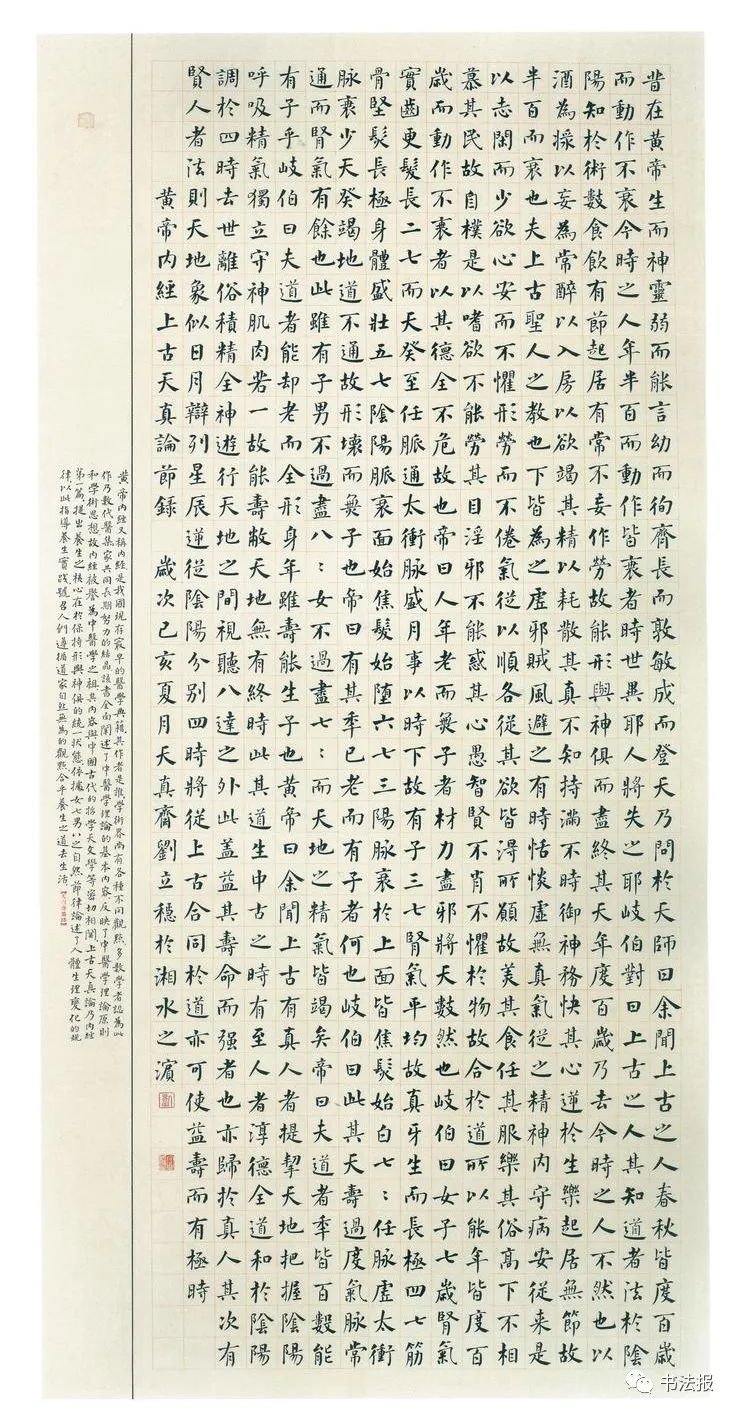 昔在黄帝生而神靈弱而能言幼而徇齊長而敦敏成而登天乃問於天師曰余聞上古之人春秋皆度百歲
而動作不衰今時之人年半百而動作皆衰者時世異耶人將失之耶岐伯對曰上古之人其知道者法於陰
陽知於術數食飲有節起居有常不妄作勞故能形與神俱而盡終其天年度百歲乃去今時之人不然也以
酒為漿以妄為常醉以入房以欲竭其精以耗散其真不知持滿不時御神務快其心逆於生樂起居無節故
半百而衰也夫上古聖人之教也下皆為之虛邪賊風避之有時恬惔虛無真氣從之精神内守病安從来是
以志閑而少欲心安而不懼形勞而不倦氣從以順各從其欲皆得所願故美其食任其服樂其俗高下不相
慕其民故自樸是以嗜欲不能勞其目淫邪不能惑其心愚智賢不肖不懼於物故合於道所以能年皆度百
歲而動作不衰者以其德全不危故也帝曰人年老而無子者材力盡邪將天數然也岐伯曰女子七歲腎氣
實齒更髮長二七而天癸至任脈通太衝脈盛月事以時下故有子三七腎氣平均故真牙生而長極四七筋
骨堅髮長極身體盛壯五七陰陽脈衰面始焦髮始墮六七三陽脈衰於上面皆焦髮始白七〻任脈虛太衝
脉衰少天癸竭地道不通故形壞而無子也帝曰有其年已老而有子者何也岐伯曰此其天壽過度氣脉常
通而腎氣有餘也此雖有子男不過盡八〻女不過盡七〻而天地之精氣皆竭矣帝曰夫道者年皆百數能
有子乎岐伯曰夫道者能却老而全形身年雖壽能生子也黄帝曰余聞上古有真人者提挈天地把握陰陽
呼吸精氣獨立守神肌肉若一故能壽敝天地無有終時此其道生中古之時有至人者淳德全道和於陰陽
調於四時去世離俗積精全神遊行天地之間視聽八達之外此盖益其壽命而强者也亦歸於真人其次有
賢人者法則天地象似日月辯列星辰逆從陰陽分別四時將從上古合同於道亦可使益壽而有極時
黄帝内經上古天真論節録 歲次己亥夏月天真齋劉立穩於湘水之濱
黄帝内經又稱内經是我國現存最早的醫學典籍其作者是誰學術界尚有各種不同觀點多數學者認為此
作乃數代醫集家共同長期努力的結晶該書全面闡述了中醫學理論的基本内容反映了中醫學理論原則
和學術思想故内經被譽為中醫學之祖其内容與中國古代的哲學天文學等密切相關上古天真論乃内經
第一篇提出養生之核心在於保持形與神俱的統一狀態依據女七男八之自然節律論述了人體生理變化的規
律以此指導養生實踐號召人們遵循道家自然無為的觀點合乎養生之道去生活
书法报